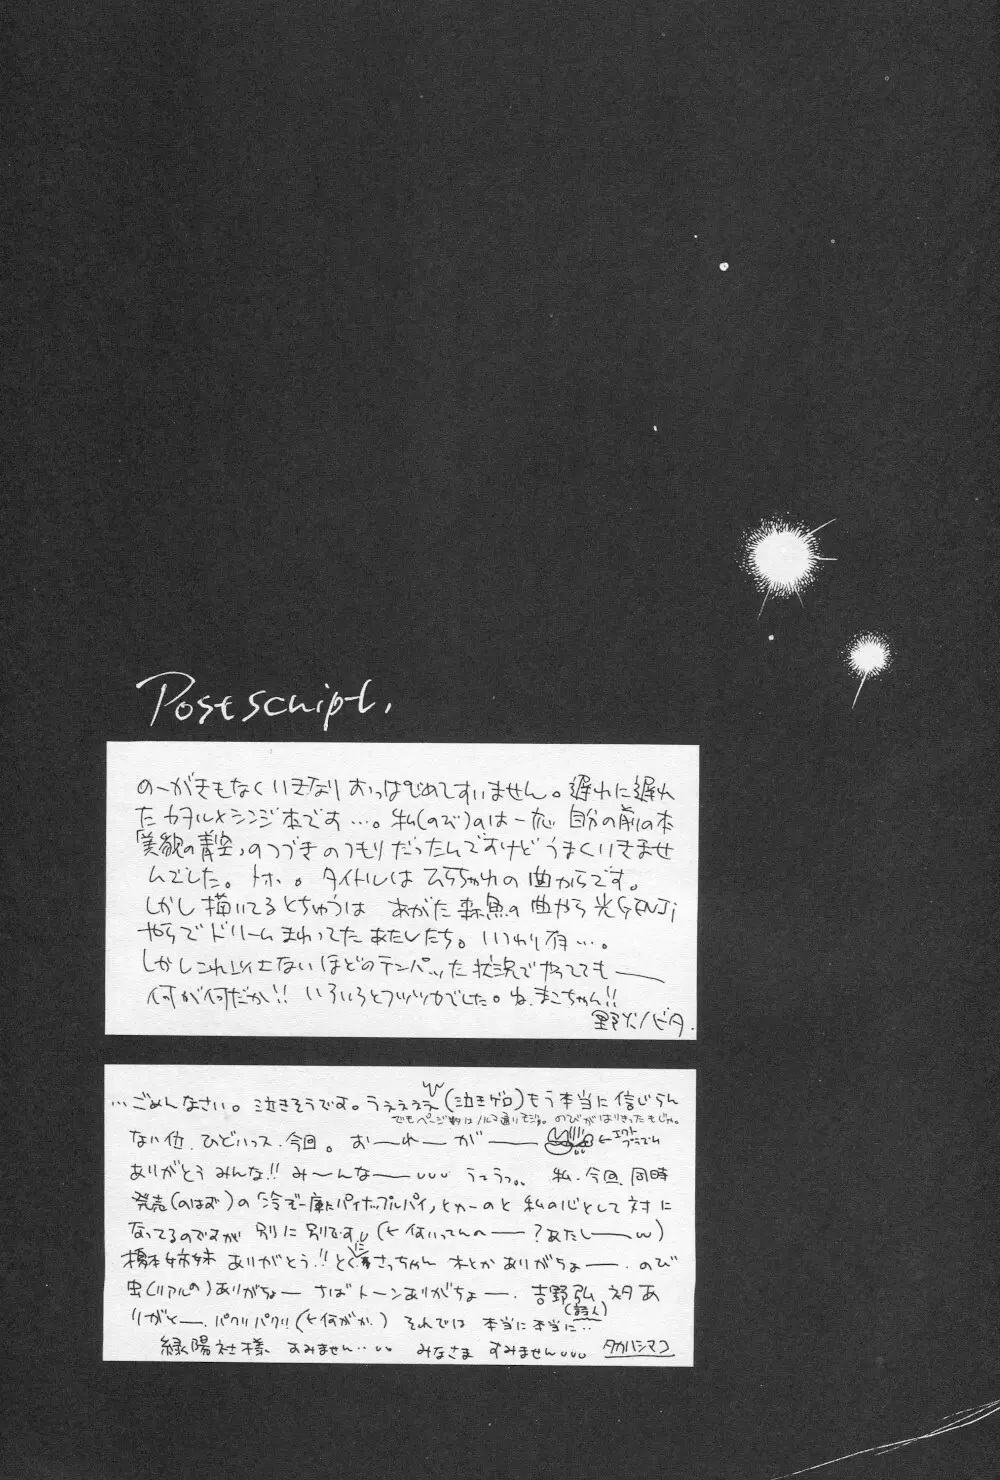 Postscript.
のーがきもなくいきなりおっぱじめてすいません。遅れに遅れ
たカヲル×シンジ本です…。私(のび)のは一応 自分の前の本
「美貌の青空」のつづきのつもりだったんですけどうまくいきませ
んでした。トホ。。タイトルは の曲からです。
しかし描いてるとちゅうは あがた森魚の曲やら光GENJI
やらでドリームまわってたあたしたち。いつわり有…。
しかしこれ以上ないほどのテンパった状況でやってても──
何が何だか!! いろいろとフツツカでした。ね、まこちゃん!!
野火ノビタ.
…ごめんなさい。泣きそうです。うえぇぇぇ(泣きゲロ)もう本当に信じらん
でもページ数はノルマ通りモジャ。のびがはりきったもじゃ。
ない位、ひどいっス、今回。お〜れ〜が〜── ←エクト
プラズム
ありがとうみんな!! み〜んな〜── うっうっ。。 私、今回、同時
発売(のはず)の「冷ぞー庫にパイナップルパイ」とかーのと 私の心として対に
なってるのですが 別に別です。(←何いってんの──?あたし──)
橋本姉妹 ありがとう!! とくにまさっちゃん ありがちょー. のび
虫(リアルの)ありがちょー さばトーンありがちょー. 吉野弘 ネタあ
(詩人)
りがとー. パクリパクリ(←何がか.) それでは 本当に本当に‥
緑陽社様 すみません‥ みなさま すみません タカハシマコ